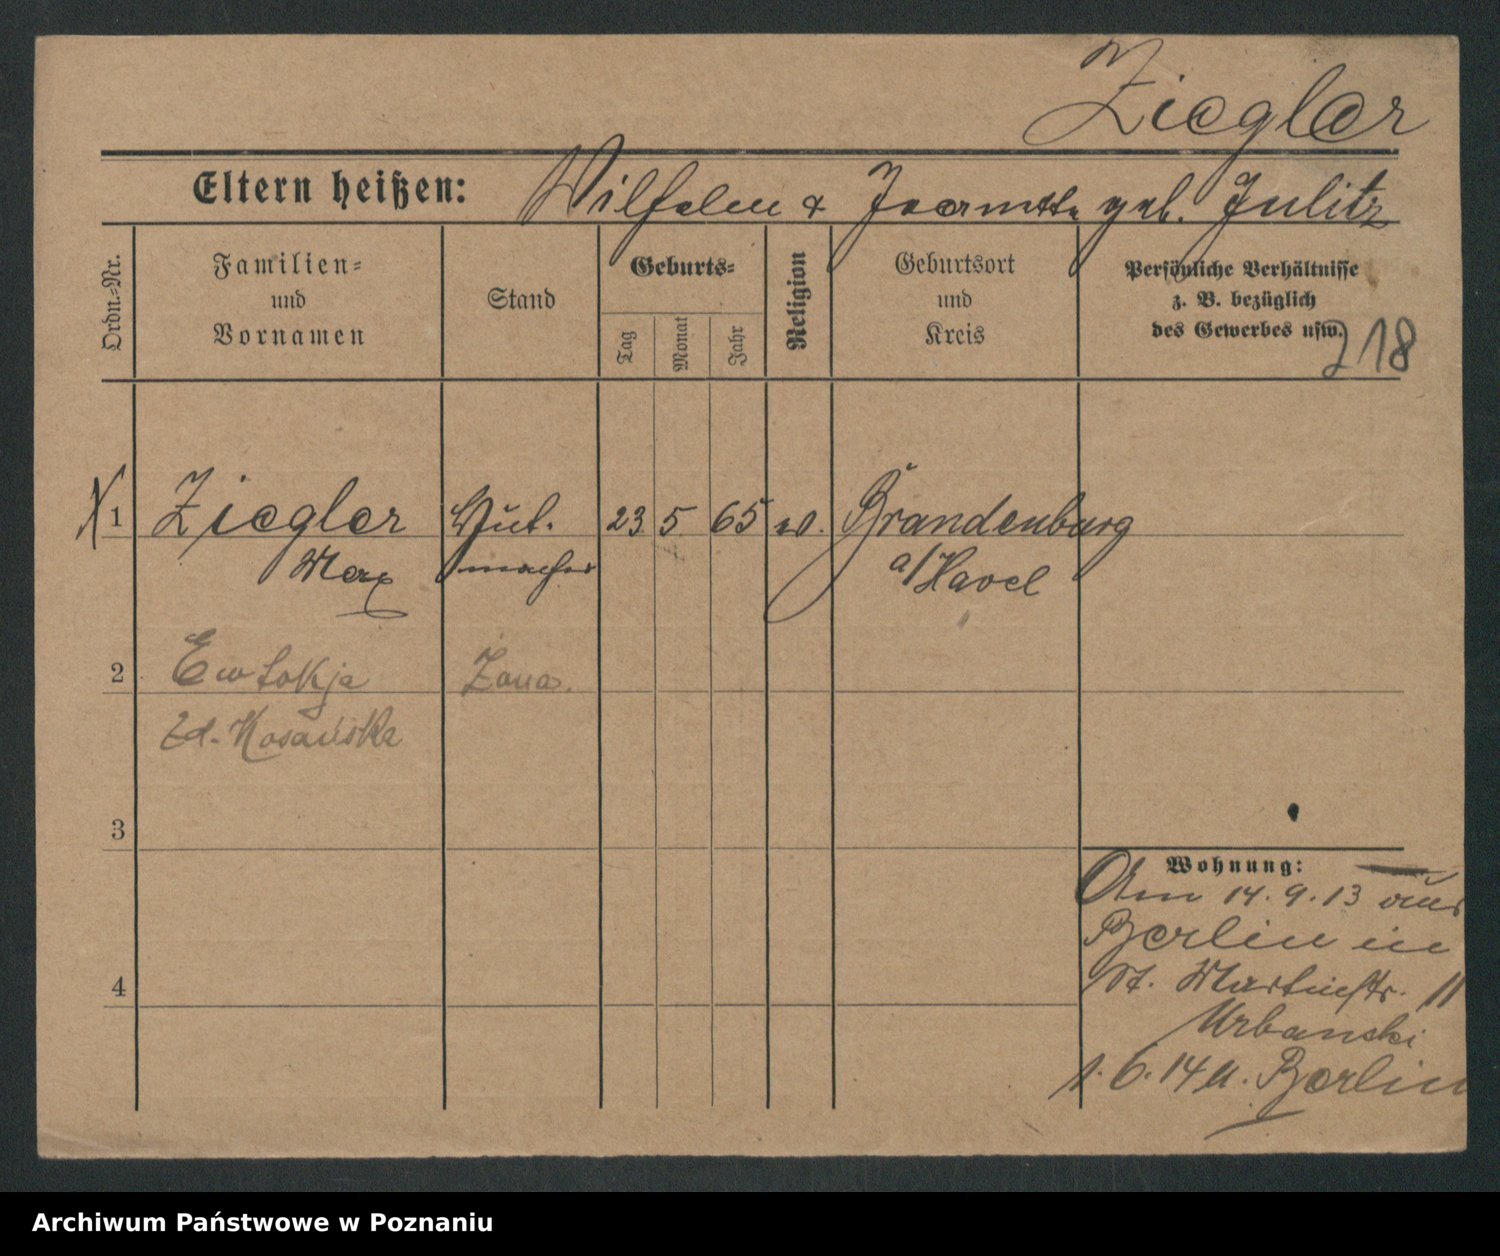 Ziegler
Eltern heißen: Wilhelm & geb. Julitz
Ordn.-Nr.
Familien-
und
Vornamen
Stand
Geburts-
Tag
Monat
Jahr
Religion
Geburtsort
und
Kreis
Persönliche Verhältnisse
z. B. bezüglich
des Gewerbes usw.
218
1 Ziegler Hut- 23 5 65 ev. Brandenburg
Max macher a/Havel
2 Ewtokja żona.
Zd. Kosańska
3
Wohnung:
Am 14.9.13 aus
Berlin in
St. Martinstr. 11
4
Urbanski
1.6.14 n. Berlin
Archiwum Państwowe w Poznaniu